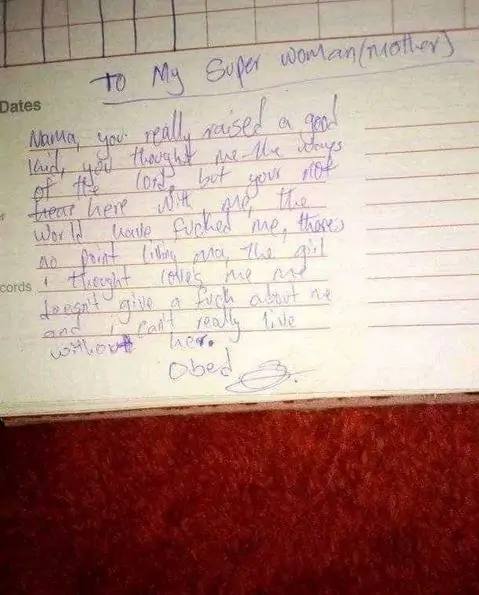 To My Super woman(mother)
Dates
Mama, you really raised a good
kid, you thought me the ways
of the lord, but your not
hear here with me, the
world have fucked me, theres
no point living ma, the girl
i thought loves me
cords
doesn't give a fuck about me
and i can't really live
without her.
Obed